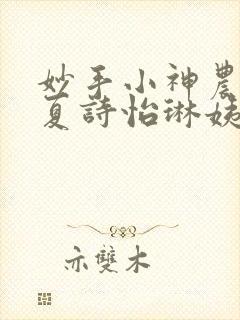 妙手小神農
夏詩怡琳姨
示雙木